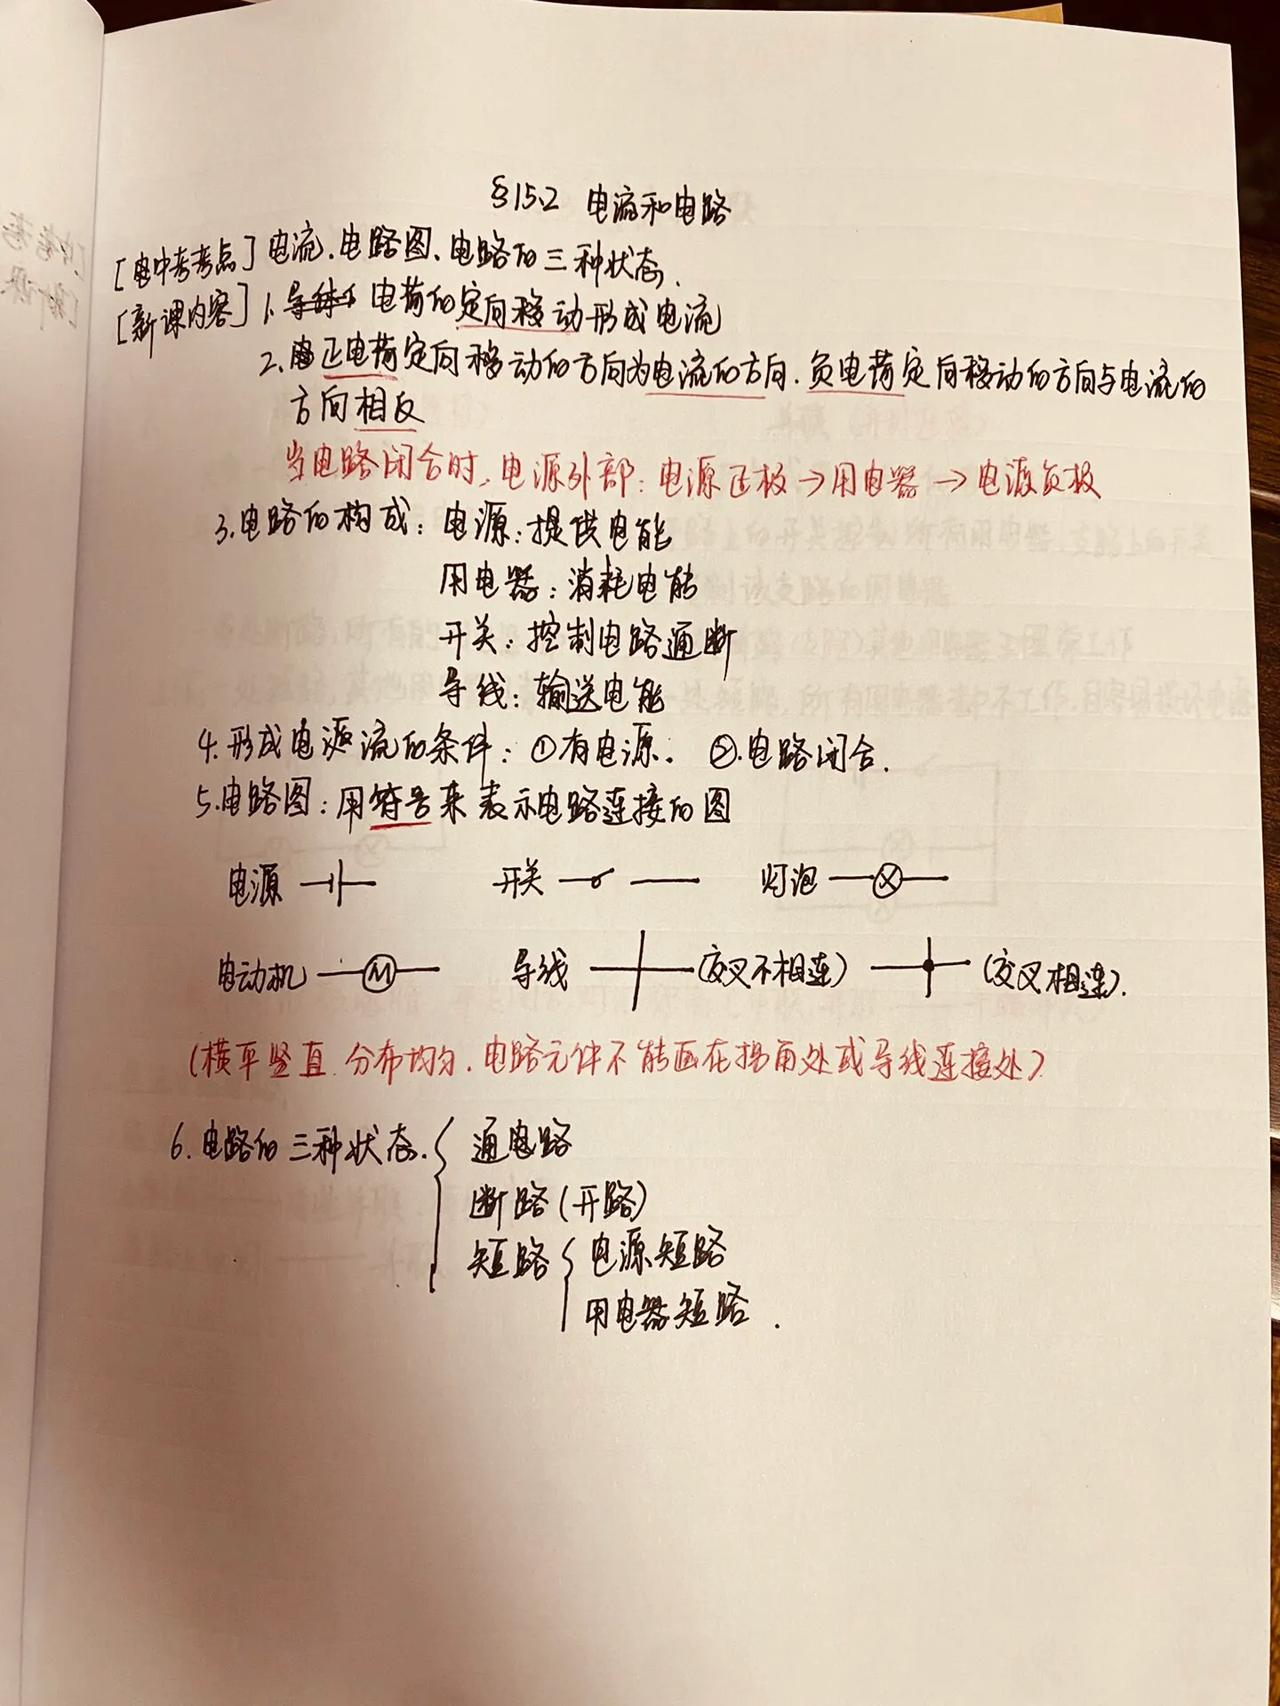 §15.2 电流和电路
[中考考点] 电流、电路图、电路的三种状态.
[新课内容] 1. 电荷的定向移动形成电流
2. 正电荷定向移动的方向为电流的方向.负电荷定向移动的方向与电流的
方向相反
当电路闭合时,电源外部:电源正极→用电器→电源负极
3.电路的构成:电源:提供电能
用电器:消耗电能
开关:控制电路通断
导线:输送电能
4.形成电流的条件:①有电源. ②.电路闭合.
5.电路图:用符号来表示电路连接的图
电源 开关 灯泡
电动机 M 导线 (交叉不相连) (交叉相连).
(横平竖直.分布均匀.电路元件不能画在拐角处或导线连接处)
6.电路的三种状态. 通路
断路(开路)
短路 电源短路
用电器短路.